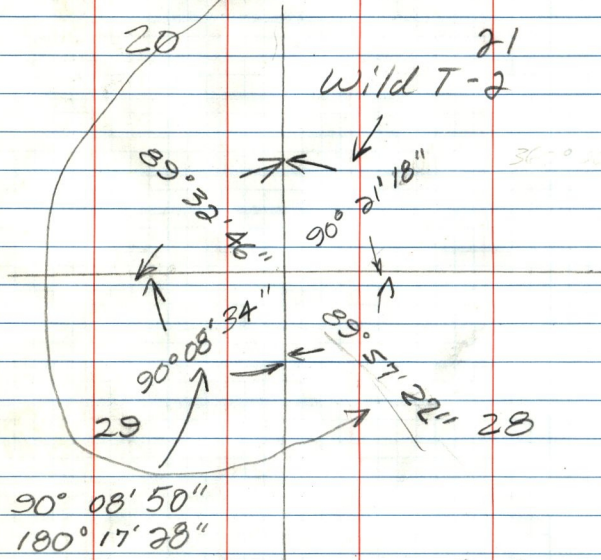 20
21
Wild T-2
89° 32' 46"
90° 21' 18"
90° 08' 34"
89° 57' 22"
29
28
90° 08' 50"
180° 17' 28"